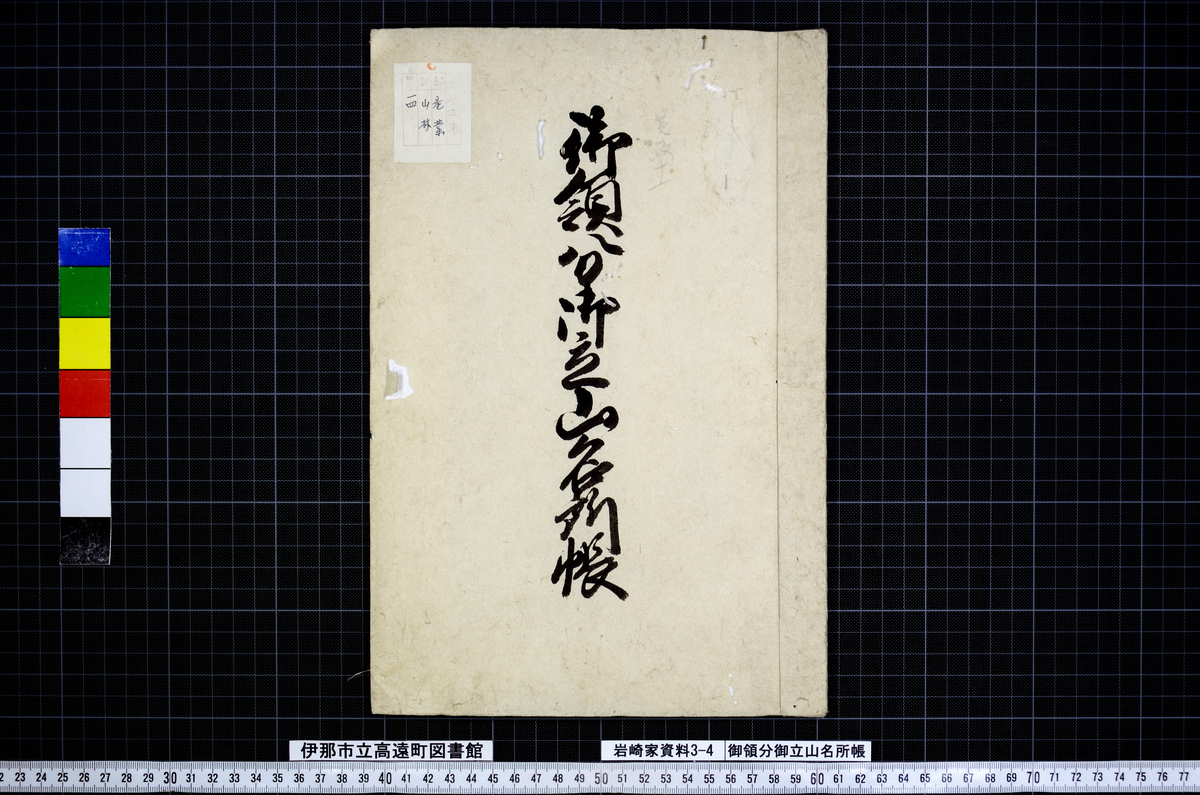 御領分御立山名所帳
産業
山林
四
伊那市立高遠町図書館
岩崎家資料3-4
御領分御立山名所帳
23 24 25 26 27 28 29 30 31 32 33 34 35 36 37 38 39 40 41 42 43 44 45 46 47 48 49 50 51 52 53 54 55 56 57 58 59 60 61 62 63 64 65 66 67 68 69 70 71 72 73 74 75 76 77